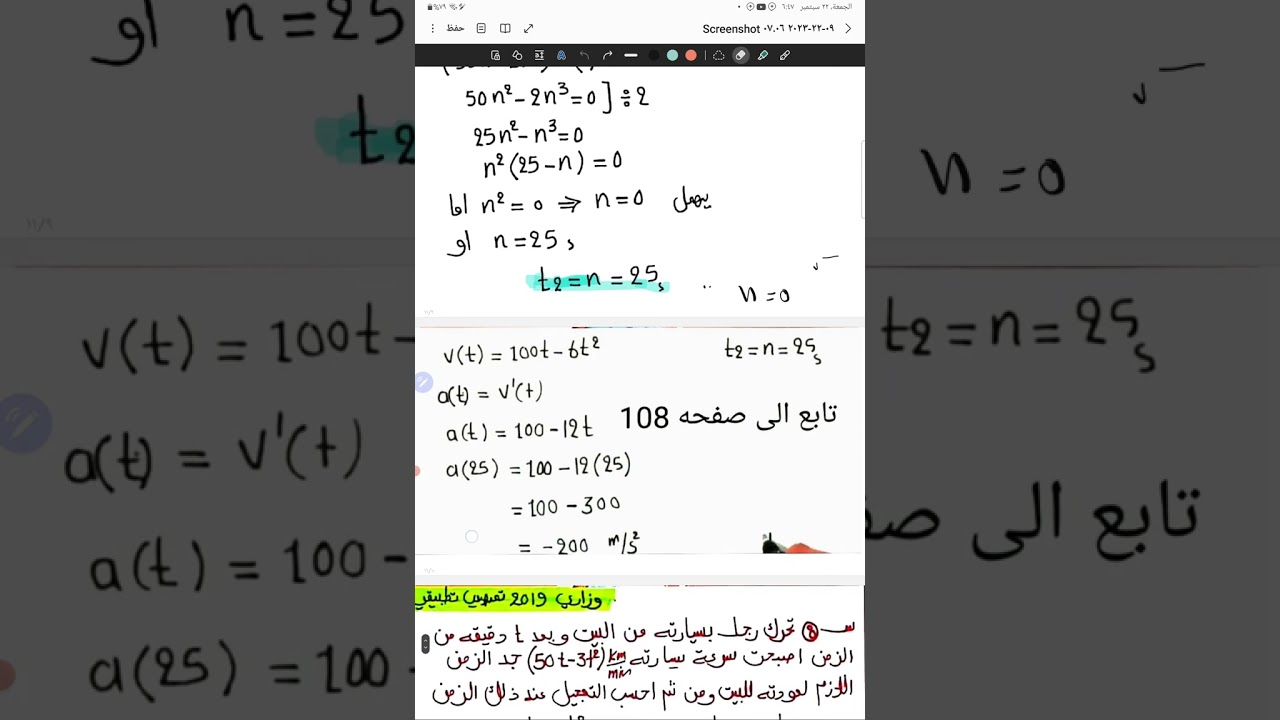 الجمعة، ٢٢ سبتمبر ٦:٤٧
٪٧٩
Screenshot ٢٠٢٣-٠٩-٢٢ ٠٧.٠٦
حفظ
50n² - 2n³ = 0 ] ÷ 2
25n² - n³ = 0
n² (25 - n) = 0
اما n² = 0 ⇒ n = 0 يهمل
او n = 25 s
t₂ = n = 25 s
n = 0
١١/٩
v(t) = 100t - 6t²
t₂ = n = 25 s
a(t) = v'(t)
تابع الى صفحه 108
a(t) = 100 - 12t
a(25) = 100 - 12(25)
= 100 - 300
= -200 m/s²
١١/١٠
وزاري 2019 تطبيقي
س8 تحرك رجل بسيارته من البيت وبعد t دقيقه من
الزمن اصبحت سرعة سيارته (50t-3t²) km/min جد الزمن
اللازم لعودته للبيت ومن ثم احسب التعجيل عند ذلك الزمن
او n = 25
t₂
n = 0
١١/٩
v(t) = 100t -
t₂ = n = 25 s
a(t) = v'(t)
تابع الى
a(t) = 100 -
a(25) = 100